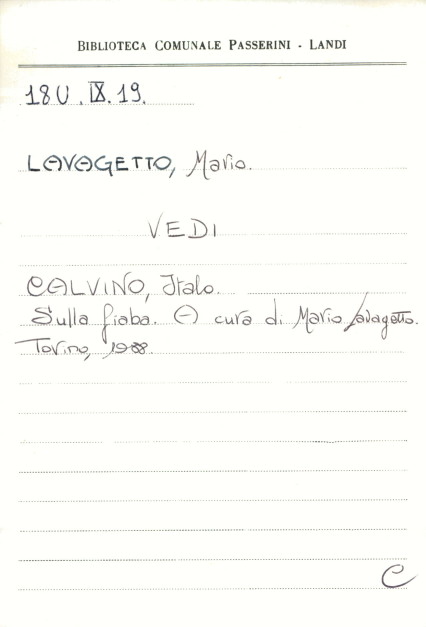 BIBLIOTECA COMUNALE PASSERINI - LANDI
18U.IX.19.
LAVAGETTO, Mario.
VEDI
CALVINO, Italo.
Sulla fiaba. A cura di Mario Lavagetto.
Torino, 1988.
C